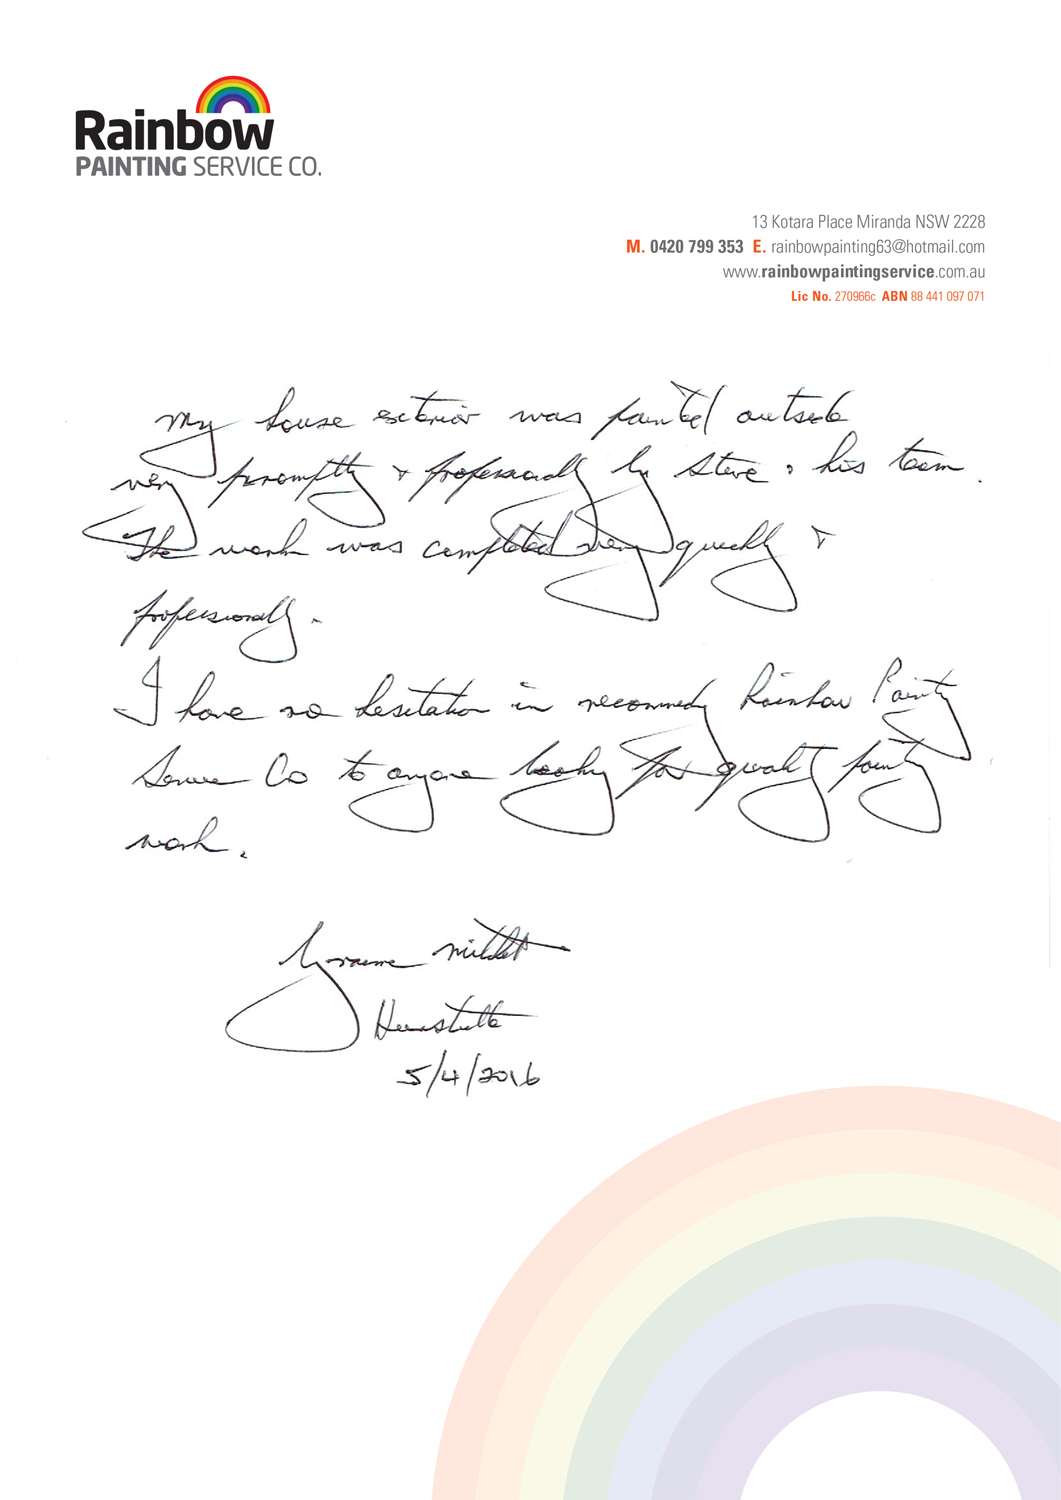 Rainbow
PAINTING SERVICE CO.
13 Kotara Place Miranda NSW 2228
M. 0420 799 353 E. rainbowpainting63@hotmail.com
www.rainbowpaintingservice.com.au
Lic No. 270966c ABN 88 441 097 071
My house exterior was painted outside
very promptly & professionally by Steve & his team.
The work was completed very quickly &
professionally.
I have no hesitation in recommending Rainbow Painting
Service Co to anyone looking for quality painting
work.
Graeme
5/4/2016